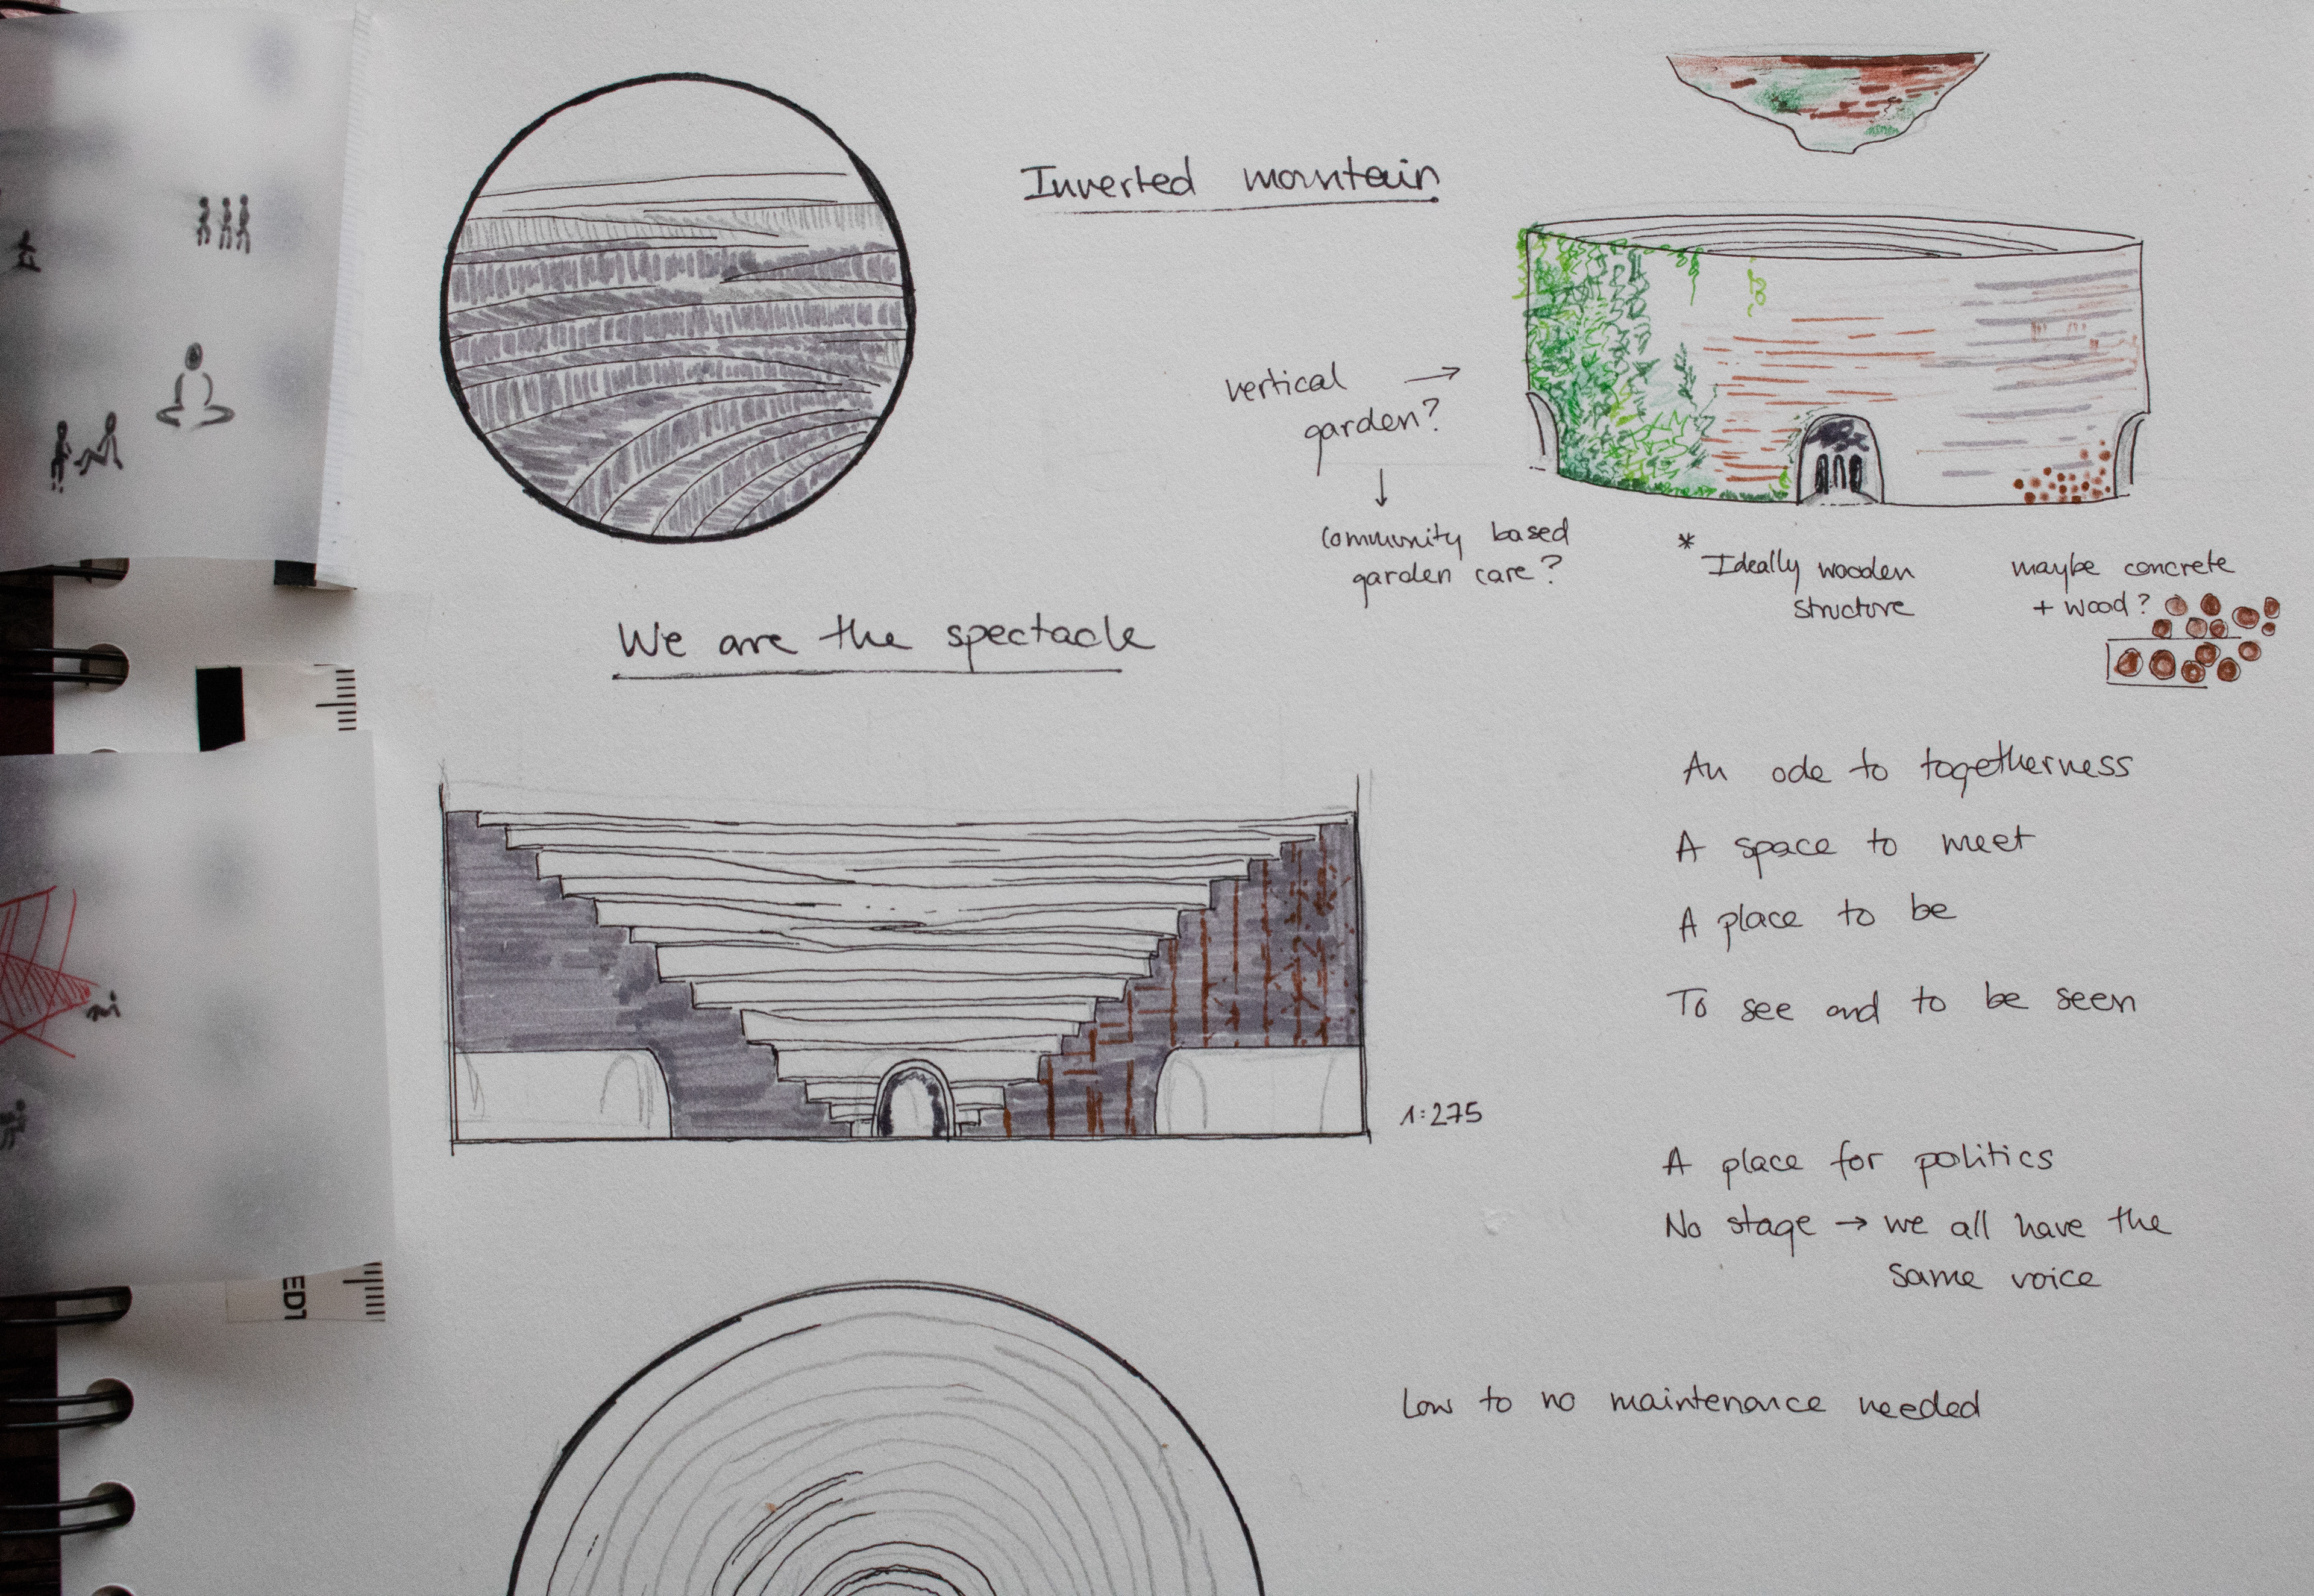 Inverted mountain
vertical →
garden?
↓
community based
garden care?
* Ideally wooden
structure
maybe concrete
+ wood?
We are the spectacle
An ode to togetherness
A space to meet
A place to be
To see and to be seen
1:275
A place for politics
No stage → we all have the
same voice
Low to no maintenance needed